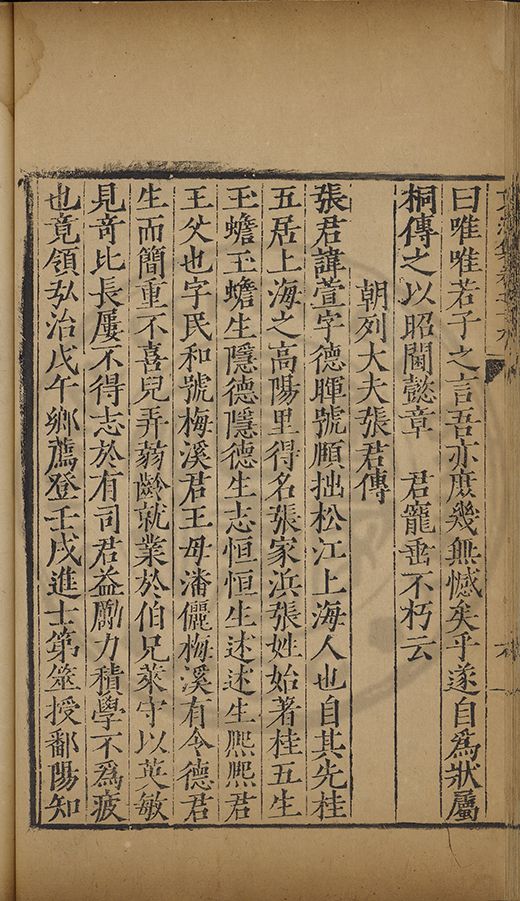 曰唯唯若子之言吾亦庶幾無憾矣乎遂自為狀屬
桐傳之以昭閫懿章　君寵垂不朽云
朝列大夫張君傳
張君諱萱字德暉號頤拙松江上海人也自其先桂
五居上海之高陽里得名張家浜張姓始著桂五生
玉蟾玉蟾生隱德隱德生志恒恒生述述生熈熈君
王父也字民和號梅溪君王母潘儷梅溪有令德君
生而簡重不喜兒弄蒻齡就業於伯兄萊守以英敏
見竒比長屢不得志於有司君益勵力積學不為疲
也竟領弘治戊午鄉薦登壬戌進士第筮授鄱陽知